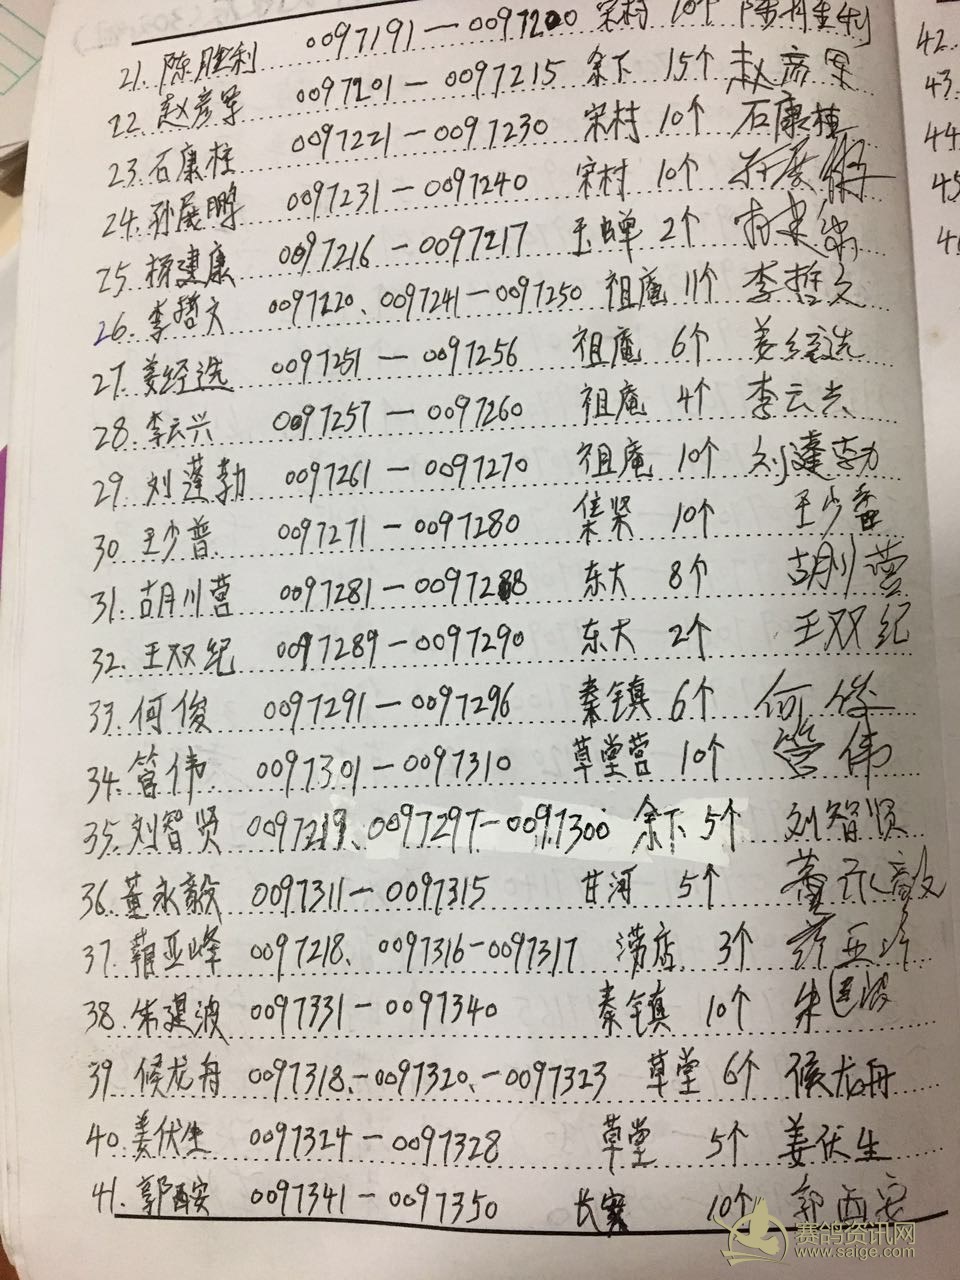 21. 陈胜利 0097191—0097200 宋村 10个 陈胜利
22. 赵彦军 0097201—0097215 余下 15个 赵彦军
23. 石康柱 0097221—0097230 宋村 10个 石康柱
24. 孙展鹏 0097231—0097240 宋村 10个 孙展鹏
25. 杨建康 0097216—0097217 玉蝉 2个
26. 李哲文 0097220、0097241—0097250 祖庵 11个 李哲文
27. 姜经选 0097251—0097256 祖庵 6个 姜经选
28. 李云兴 0097257—0097260 祖庵 4个 李云兴
29. 刘蓬勃 0097261—0097270 祖庵 10个 刘蓬勃
30. 王少普 0097271—0097280 集贤 10个 王少普
31. 胡川营 0097281—0097288 东大 8个 胡川营
32. 王双纪 0097289—0097290 东大 2个 王双纪
33. 何俊 0097291—0097296 秦镇 6个 何俊
34. 管伟 0097301—0097310 草堂营 10个 管伟
35. 刘智贤 0097219、0097297—0097300 余下 5个 刘智贤
36. 董永毅 0097311—0097315 甘河 5个 董永毅
37. 亚峰 0097218、0097316—0097317 涝店 3个
38. 朱建波 0097331—0097340 秦镇 10个 朱建波
39. 候龙舟 0097318、—0097320、—0097323 草堂 6个 候龙舟
40. 姜伏生 0097324—0097328 草堂 5个 姜伏生
41. 郭西安 0097341—0097350 长安 10个 郭西安
42.
43.
44
45
赛鸽资讯网
www.saige.com